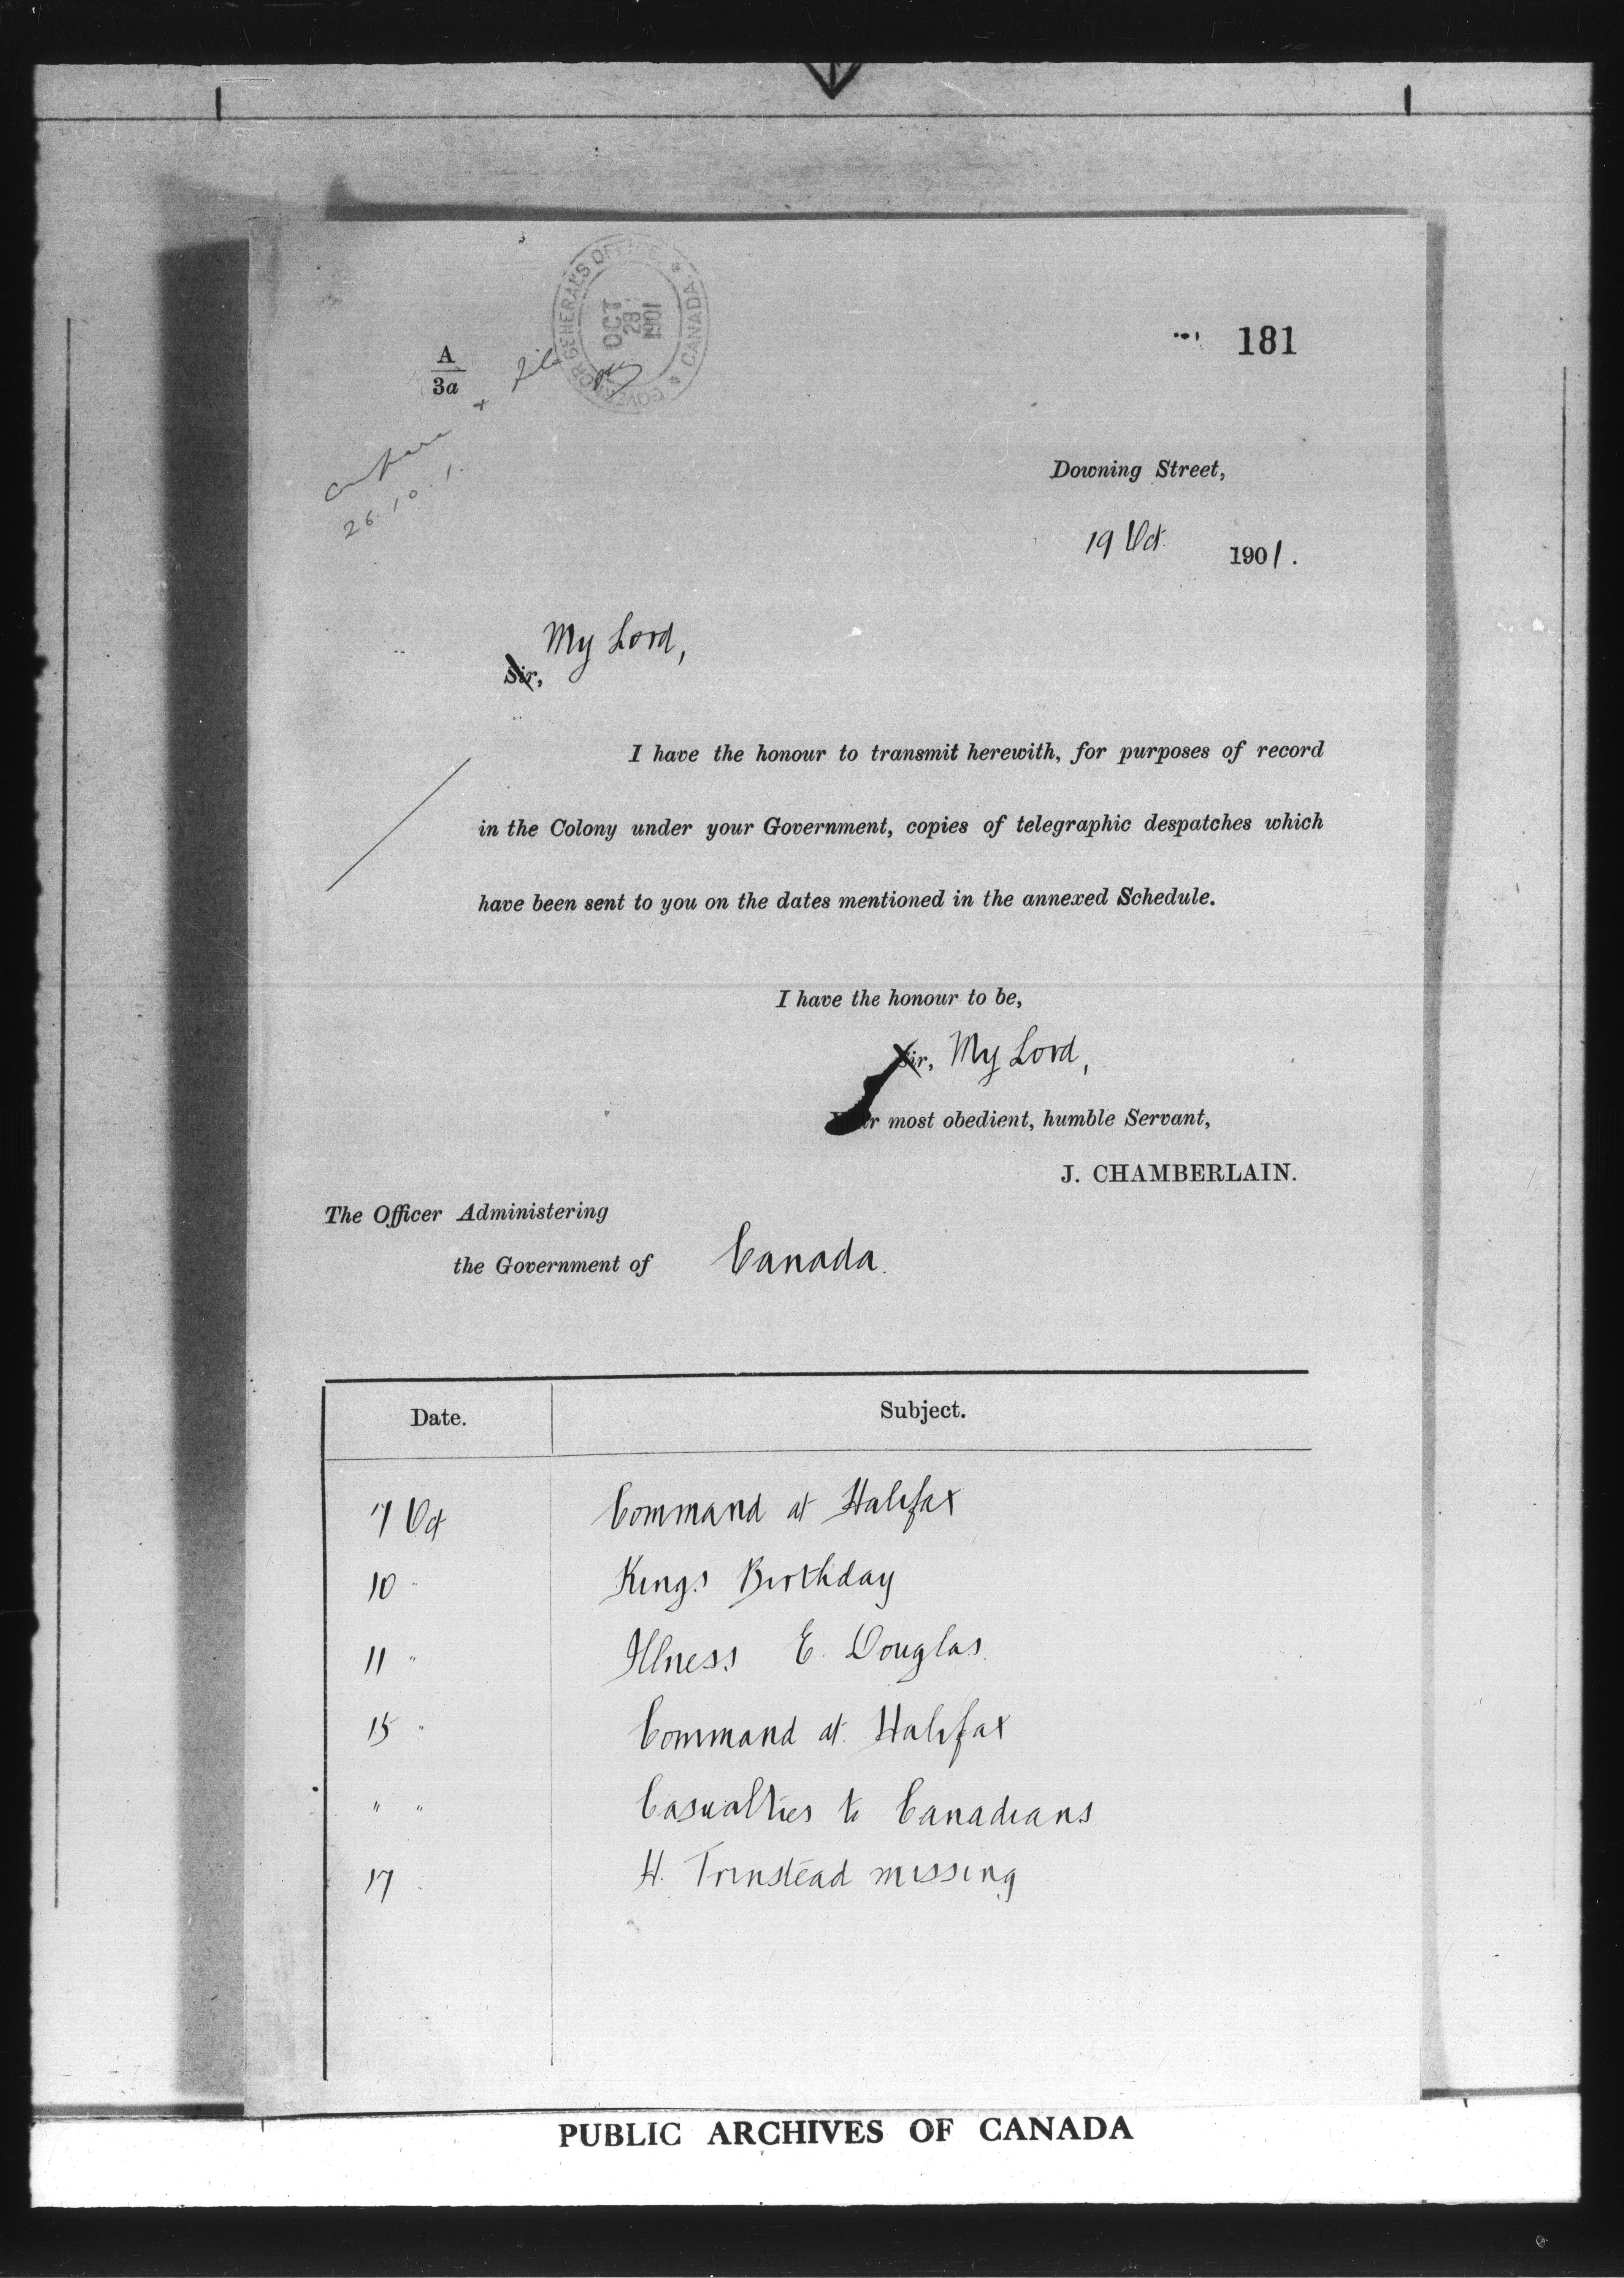 GOVERNOR GENERAL'S OFFICE * CANADA *
OCT
1901
181
A
3a
file
26.10.1.
Downing Street,
19 Oct. 1901.
My Lord,
Sir,
I have the honour to transmit herewith, for purposes of record
in the Colony under your Government, copies of telegraphic despatches which
have been sent to you on the dates mentioned in the annexed Schedule.
I have the honour to be,
Sir, My Lord,
Your most obedient, humble Servant,
J. CHAMBERLAIN.
The Officer Administering
the Government of Canada.
Date. Subject.
7 Oct Command at Halifax
10 " Kings Birthday
11 " Illness E. Douglas.
15 " Command at Halifax
" " Casualties to Canadians
17 " H. Trinstead missing
PUBLIC ARCHIVES OF CANADA